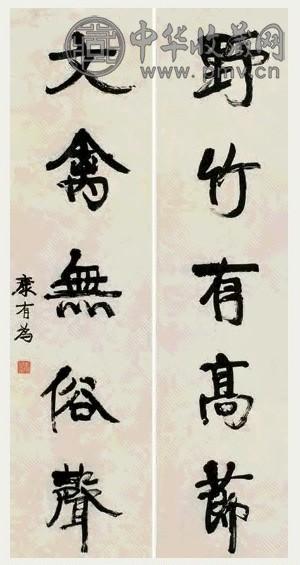 中华收藏网
www.pmv.cn
野竹有高節
大禽無俗聲
康有為